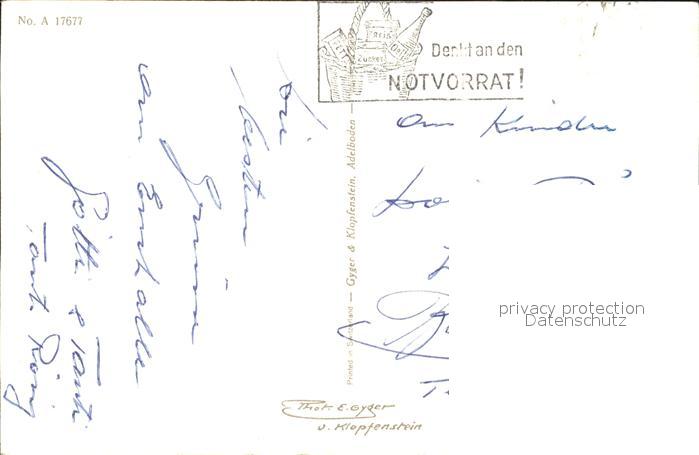 No. A 17677
Reis
Zucker
Denkt an den
NOTVORRAT!
die
besten
Grüsse
an Euch alle
Götti & Tanti
Tanti Rösy
Printed in Switzerland — Gyger & Klopfenstein, Adelboden —
An Kinder
privacy protection
Datenschutz
Phot. E. Gyger
u. Klopfenstein